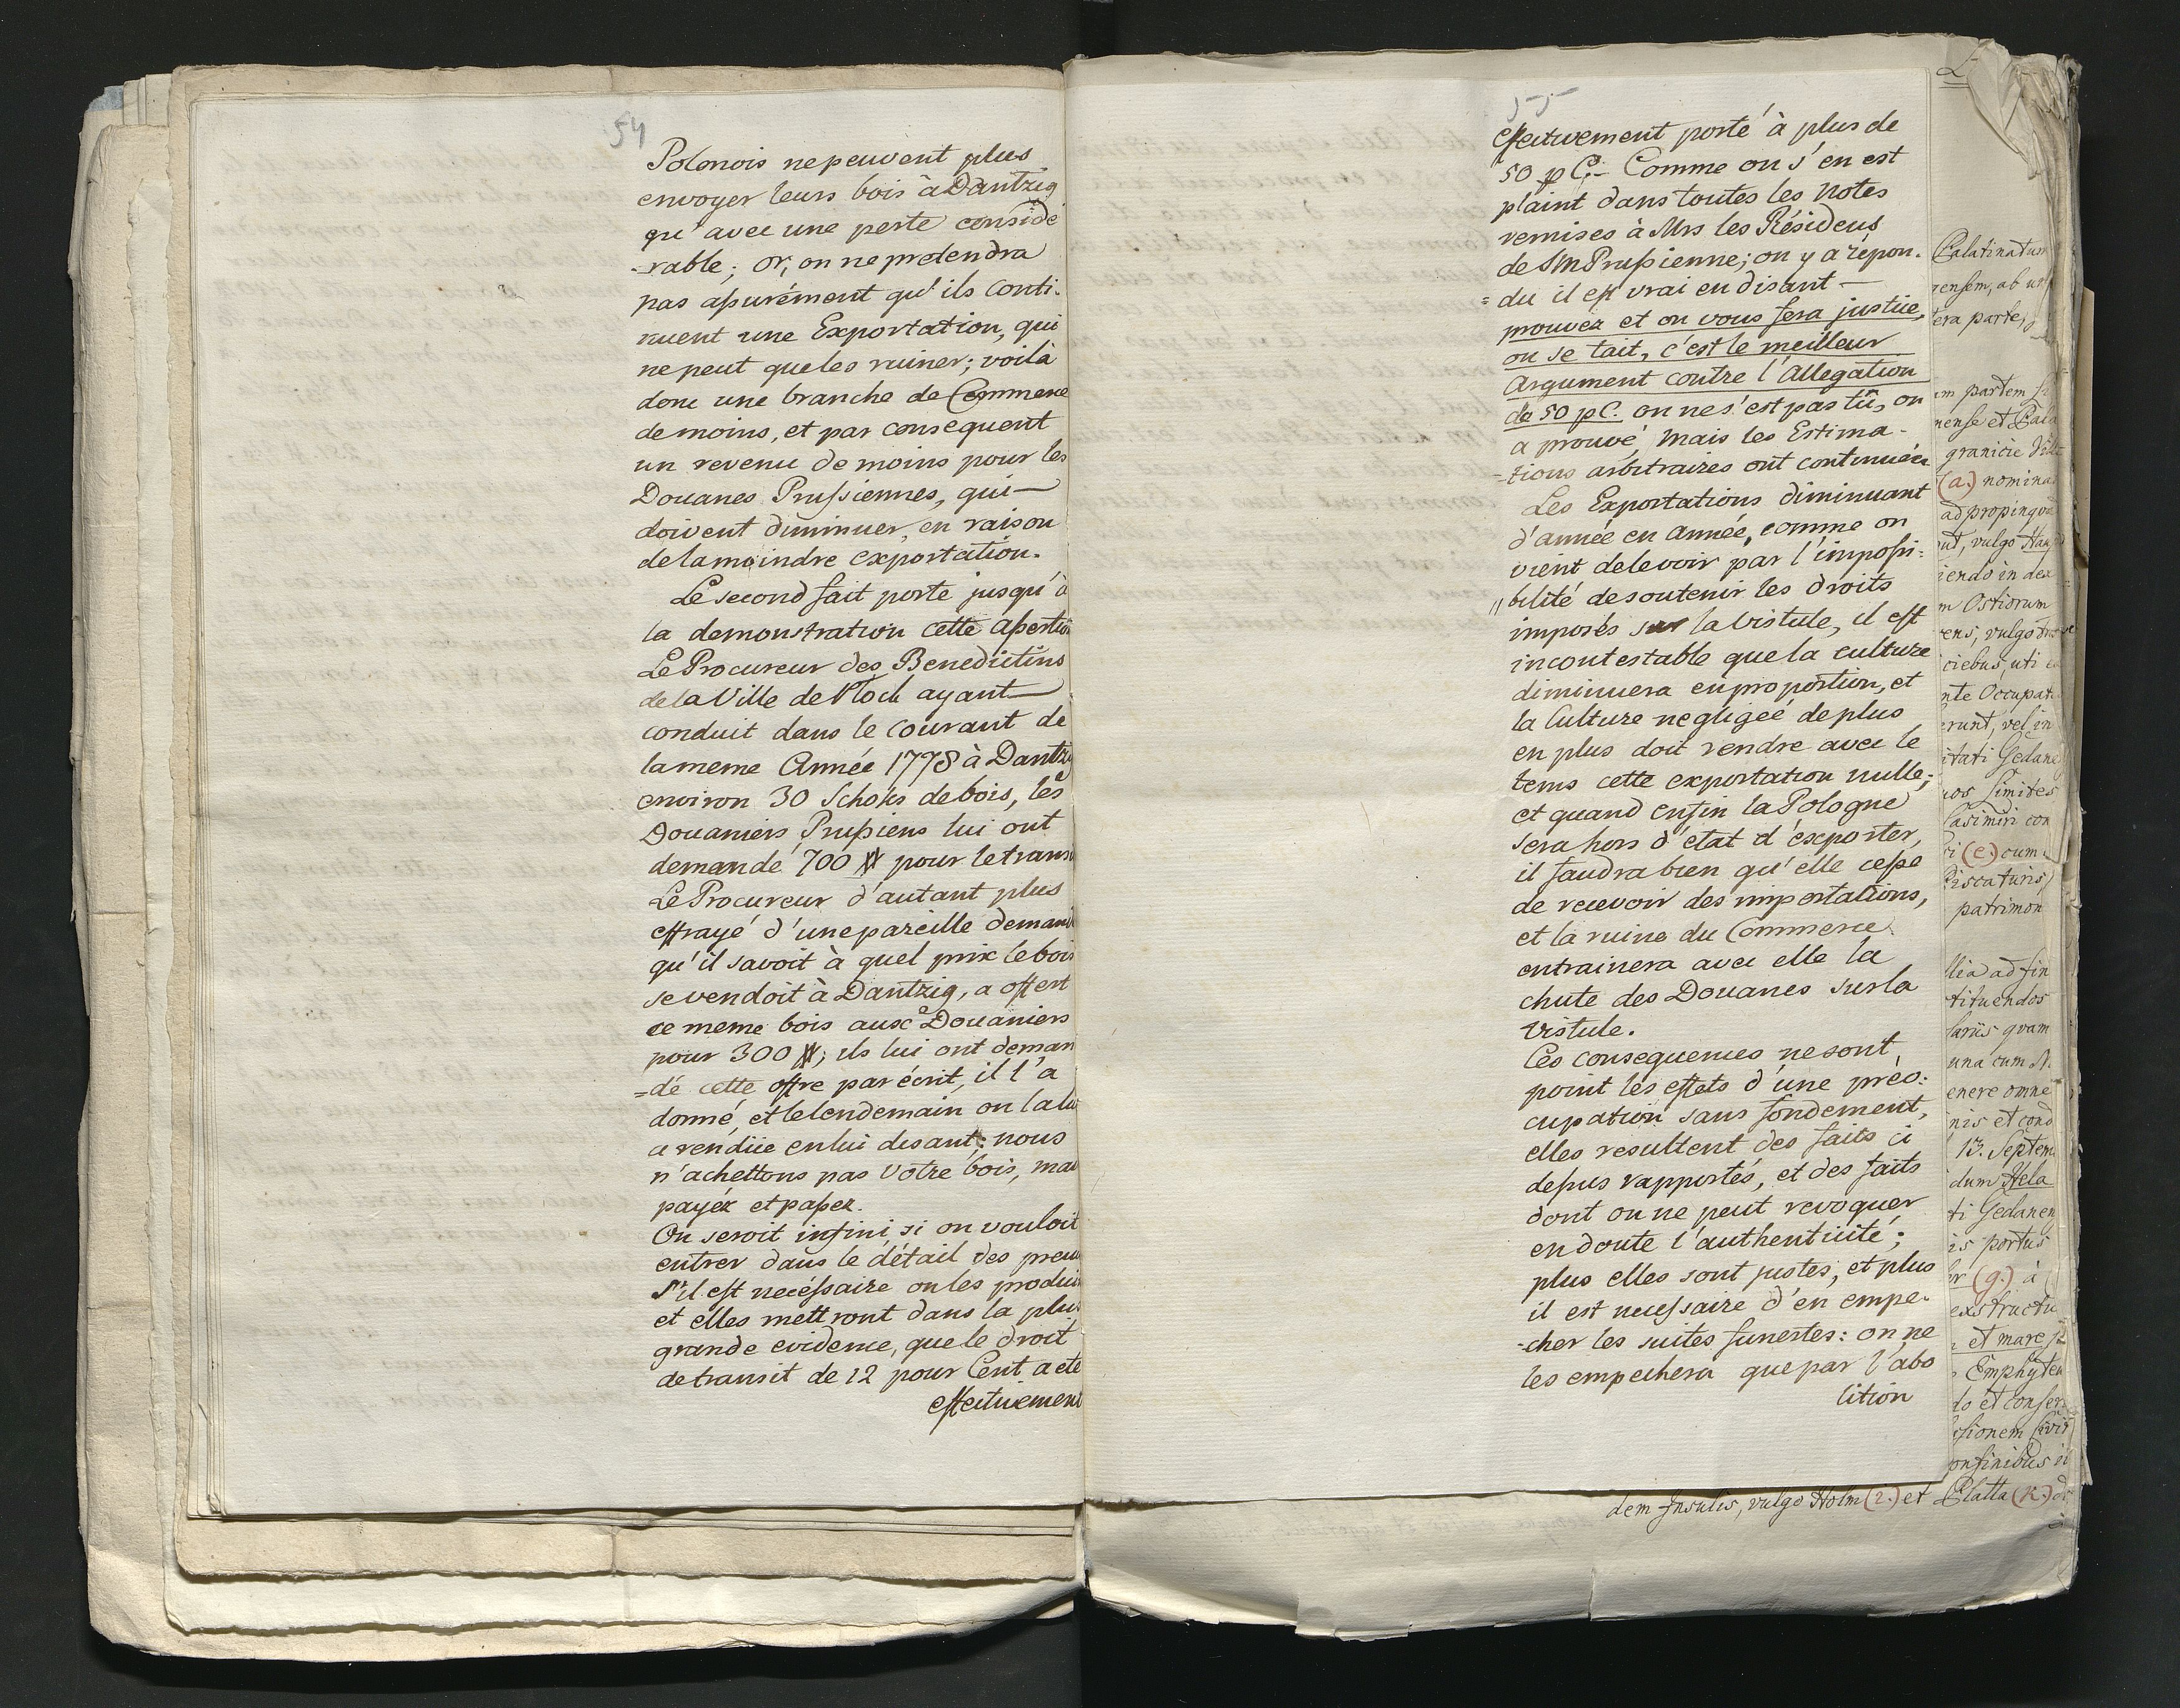 54
Polonois ne peuvent plus
envoyer leurs bois à Dantzig
qu'avec une perte conside
-rable; or, on ne pretendra
pas assurément qu'ils conti-
nuent une Exportation, qui
ne peut que les ruiner; voilà
donc une branche de Commerce
de moins, et par consequent
un revenu de moins pour les
Douanes Prussiennes, qui
doivent diminuer, en raison
de la moindre exportation.
Le second fait porte jusqu'à
la demonstration cette assertion
Le Procureur des Benedictins
de la Ville de Plock ayant
conduit dans le courant de
la meme Année 1778 à Dantzig
environ 30 Schoks de bois, les
Douaniers Prussiens lui ont
demandé 700 # pour le transi
Le Procureur d'autant plus
effrayé d'une pareille demande
qu'il savoit à quel prix le bois
se vendoit à Dantzig, a offert
ce meme bois aux Douaniers
pour 300 #; ils lui ont deman
=dé cette offre par écrit, il l'a
donné, et le lendemain on la lui
a rendüe en lui disant: nous
n'achettons pas Votre bois, mais
payéz et passez.
On seroit infini, si on vouloit
entrer dans le détail des preuv
S'il est necéssaire on les produir
et elles mettront dans la plus
grande evidence, que le droit
de transit de 12 pour Cent a eté
effectivement
55
effectivement porté à plus de
50 p C:- Comme on s'en est
plaint dans toutes les Notes
remises à Mrs les Résidens
de SM Prussienne; on y a répon-
=du il est vrai en disant —
prouvéz et on vous fera justice,
on se tait, c'est le meilleur
argument contre l'Allegation
de 50 pC. on ne s'est pas tû, on
a prouvé, mais les Estima-
-tions arbitraires ont continuées
Les Exportations diminuant
d'année en année, comme on
vient de le voir par l'impossi:
"bilité de soutenir les droits
imposés sur la Vistule, il est
incontestable que la culture
diminuera en proportion, et
la Culture negligée de plus
en plus doit rendre avec le
tems cette exportation nulle;
et quand enfin la Pologne
sera hors d'état d'exporter,
il faudra bien qu'elle cesse
de recevoir des importations,
et la ruine du Commerce
entrainera avec elle la
chute des Douanes sur la
Vistule.
Ces consequences ne sont,
point les effets d'une préo:
cupation sans fondement,
elles resultent des faits ci
dessus rapportés, et des faits
dont on ne peut revoquer
en doute l'authenticité;
plus elles sont justes, et plus
il est necessaire d'en empe-
-cher les suites funestes: on ne
les empechera que par l'abo
lition
Palatinatum
rensem, ab un
tera parte,
em partem
nense et Pala
granicie
(a.) nomina
ad propinqva
ut, vulgo
iendo in dex
m Ostiorum
ens, vulgo
ciebus, uti
nte Occupat
erunt, vel in
itati Gedane
uos Limites
Casimiri con
ri (e.) cum
Piscaturis,
patrimon
llia ad fin
tituendos
lariis qvam
una cum
enere omne
nis et cond
13. Septem
dum Hela
ti Gedanen
is portus
or (g.) à
exstructu
et mare
Emphyteu
do et conser
isionem Civi
onfinibus
dem Insulis, vulgo Holm (2.) et Platta (K.) de